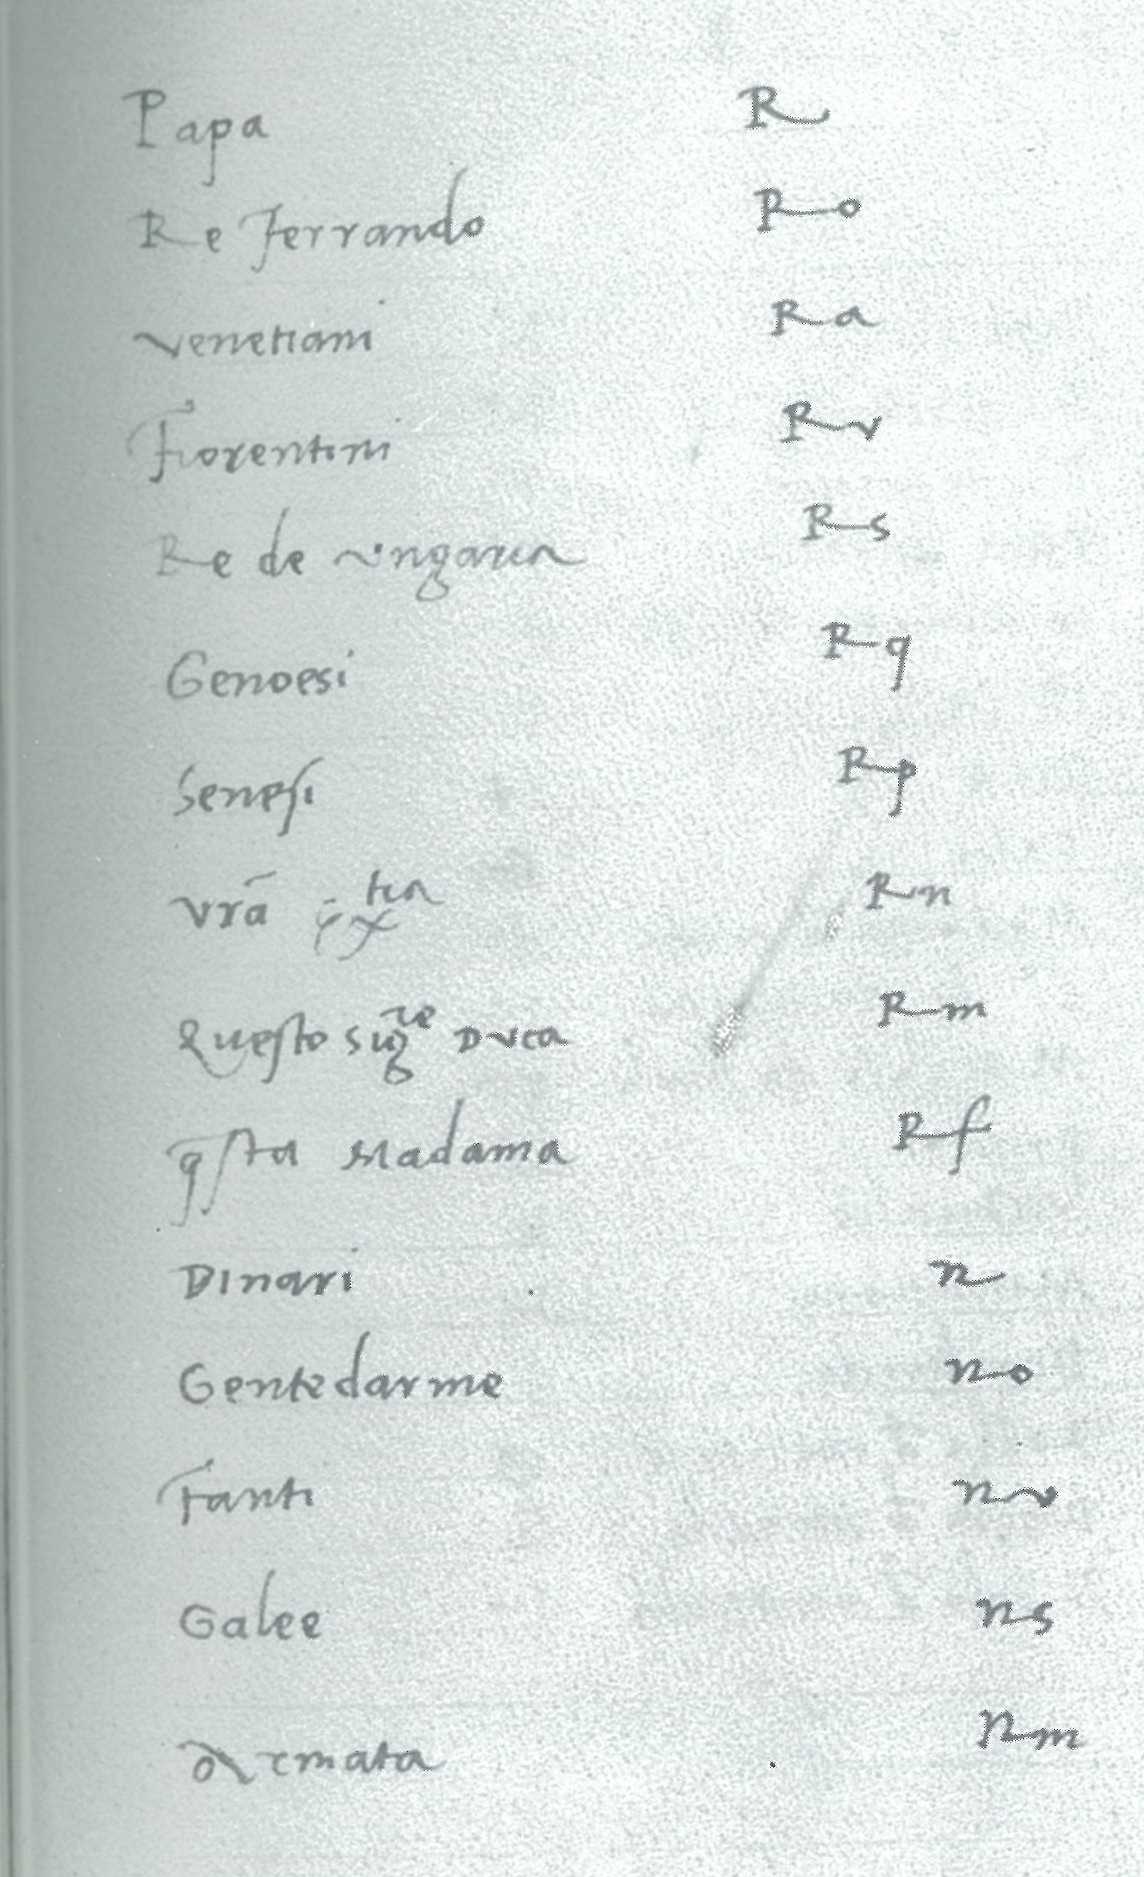 Papa R
Re Ferrando Ro
Venetiani Ra
Fiorentini Rv
Re de vngaria Rs
Genoesi Rq
Senesi Rp
vrā Rn
Questo sigre Duca Rm
qsta Madama Rf
Dinari n
Gentedarme no
Fanti nv
Galee ns
Armata nm